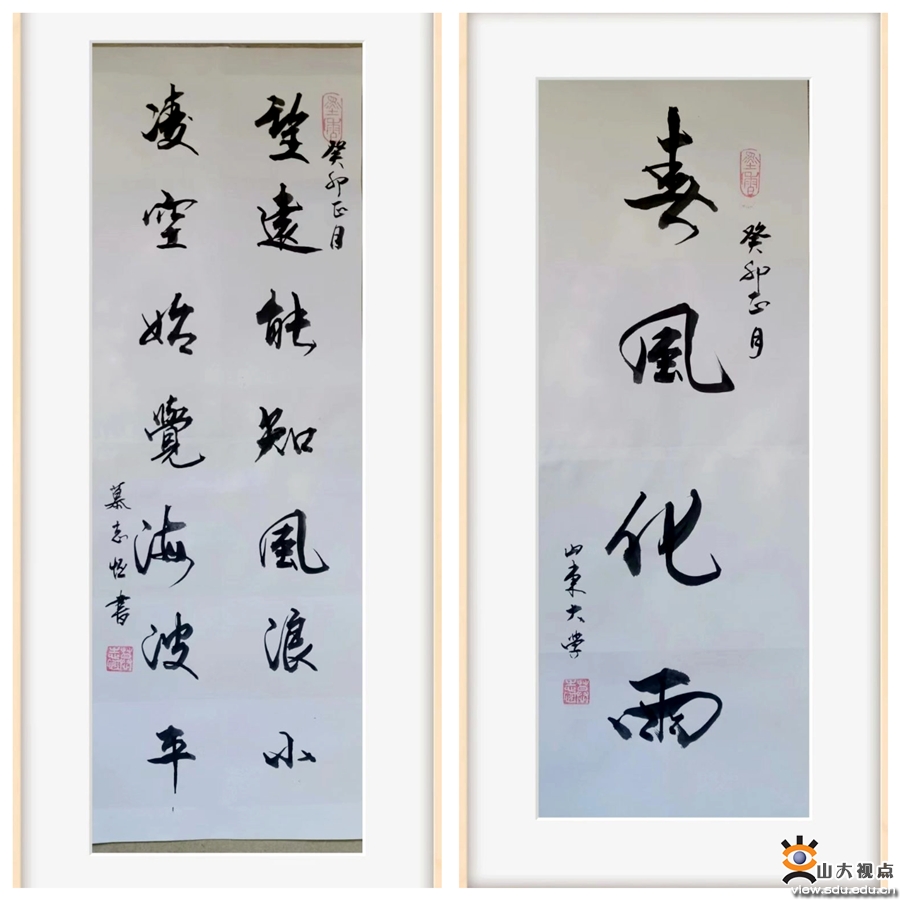 癸卯正月
望遠能知風浪小
凌空始覺海波平
慕志恒書
癸卯正月
春風化雨
山東大學
山大视点
view.sdu.edu.cn